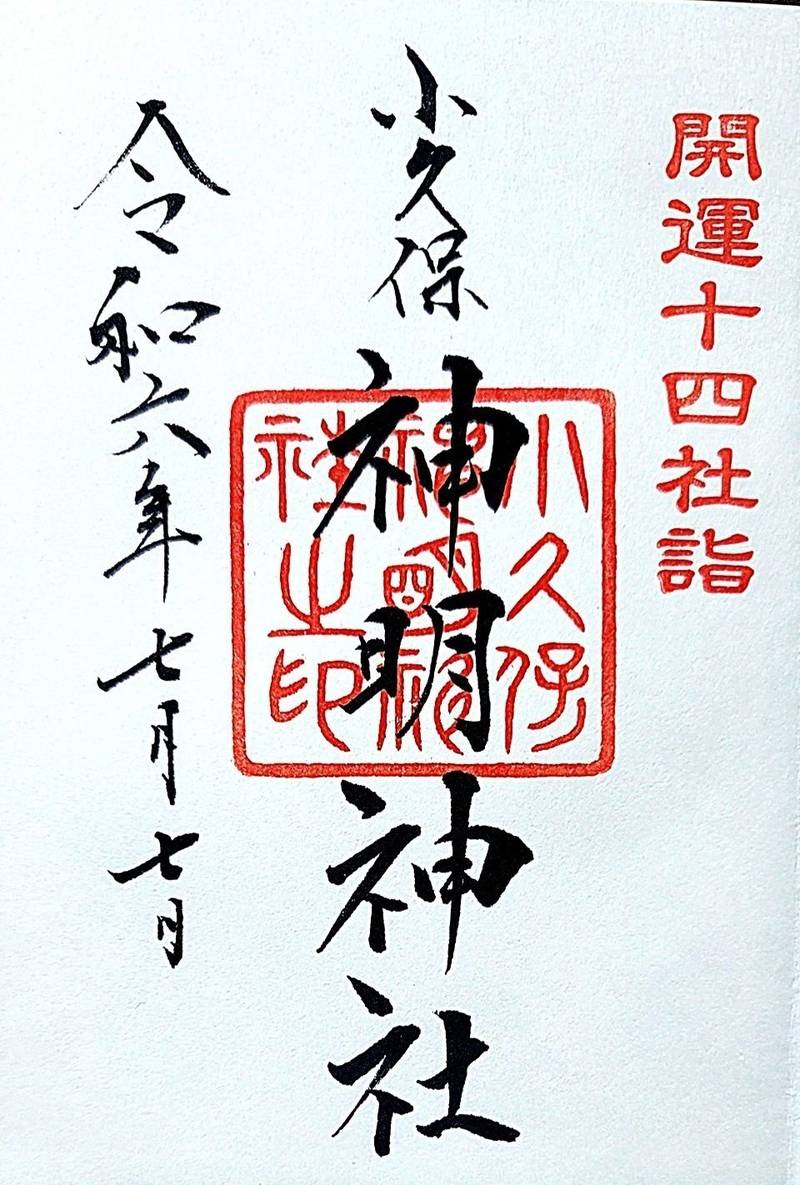 開運十四社詣
小久保神明神社
小久保
神明神
社之印
令和六年七月七日